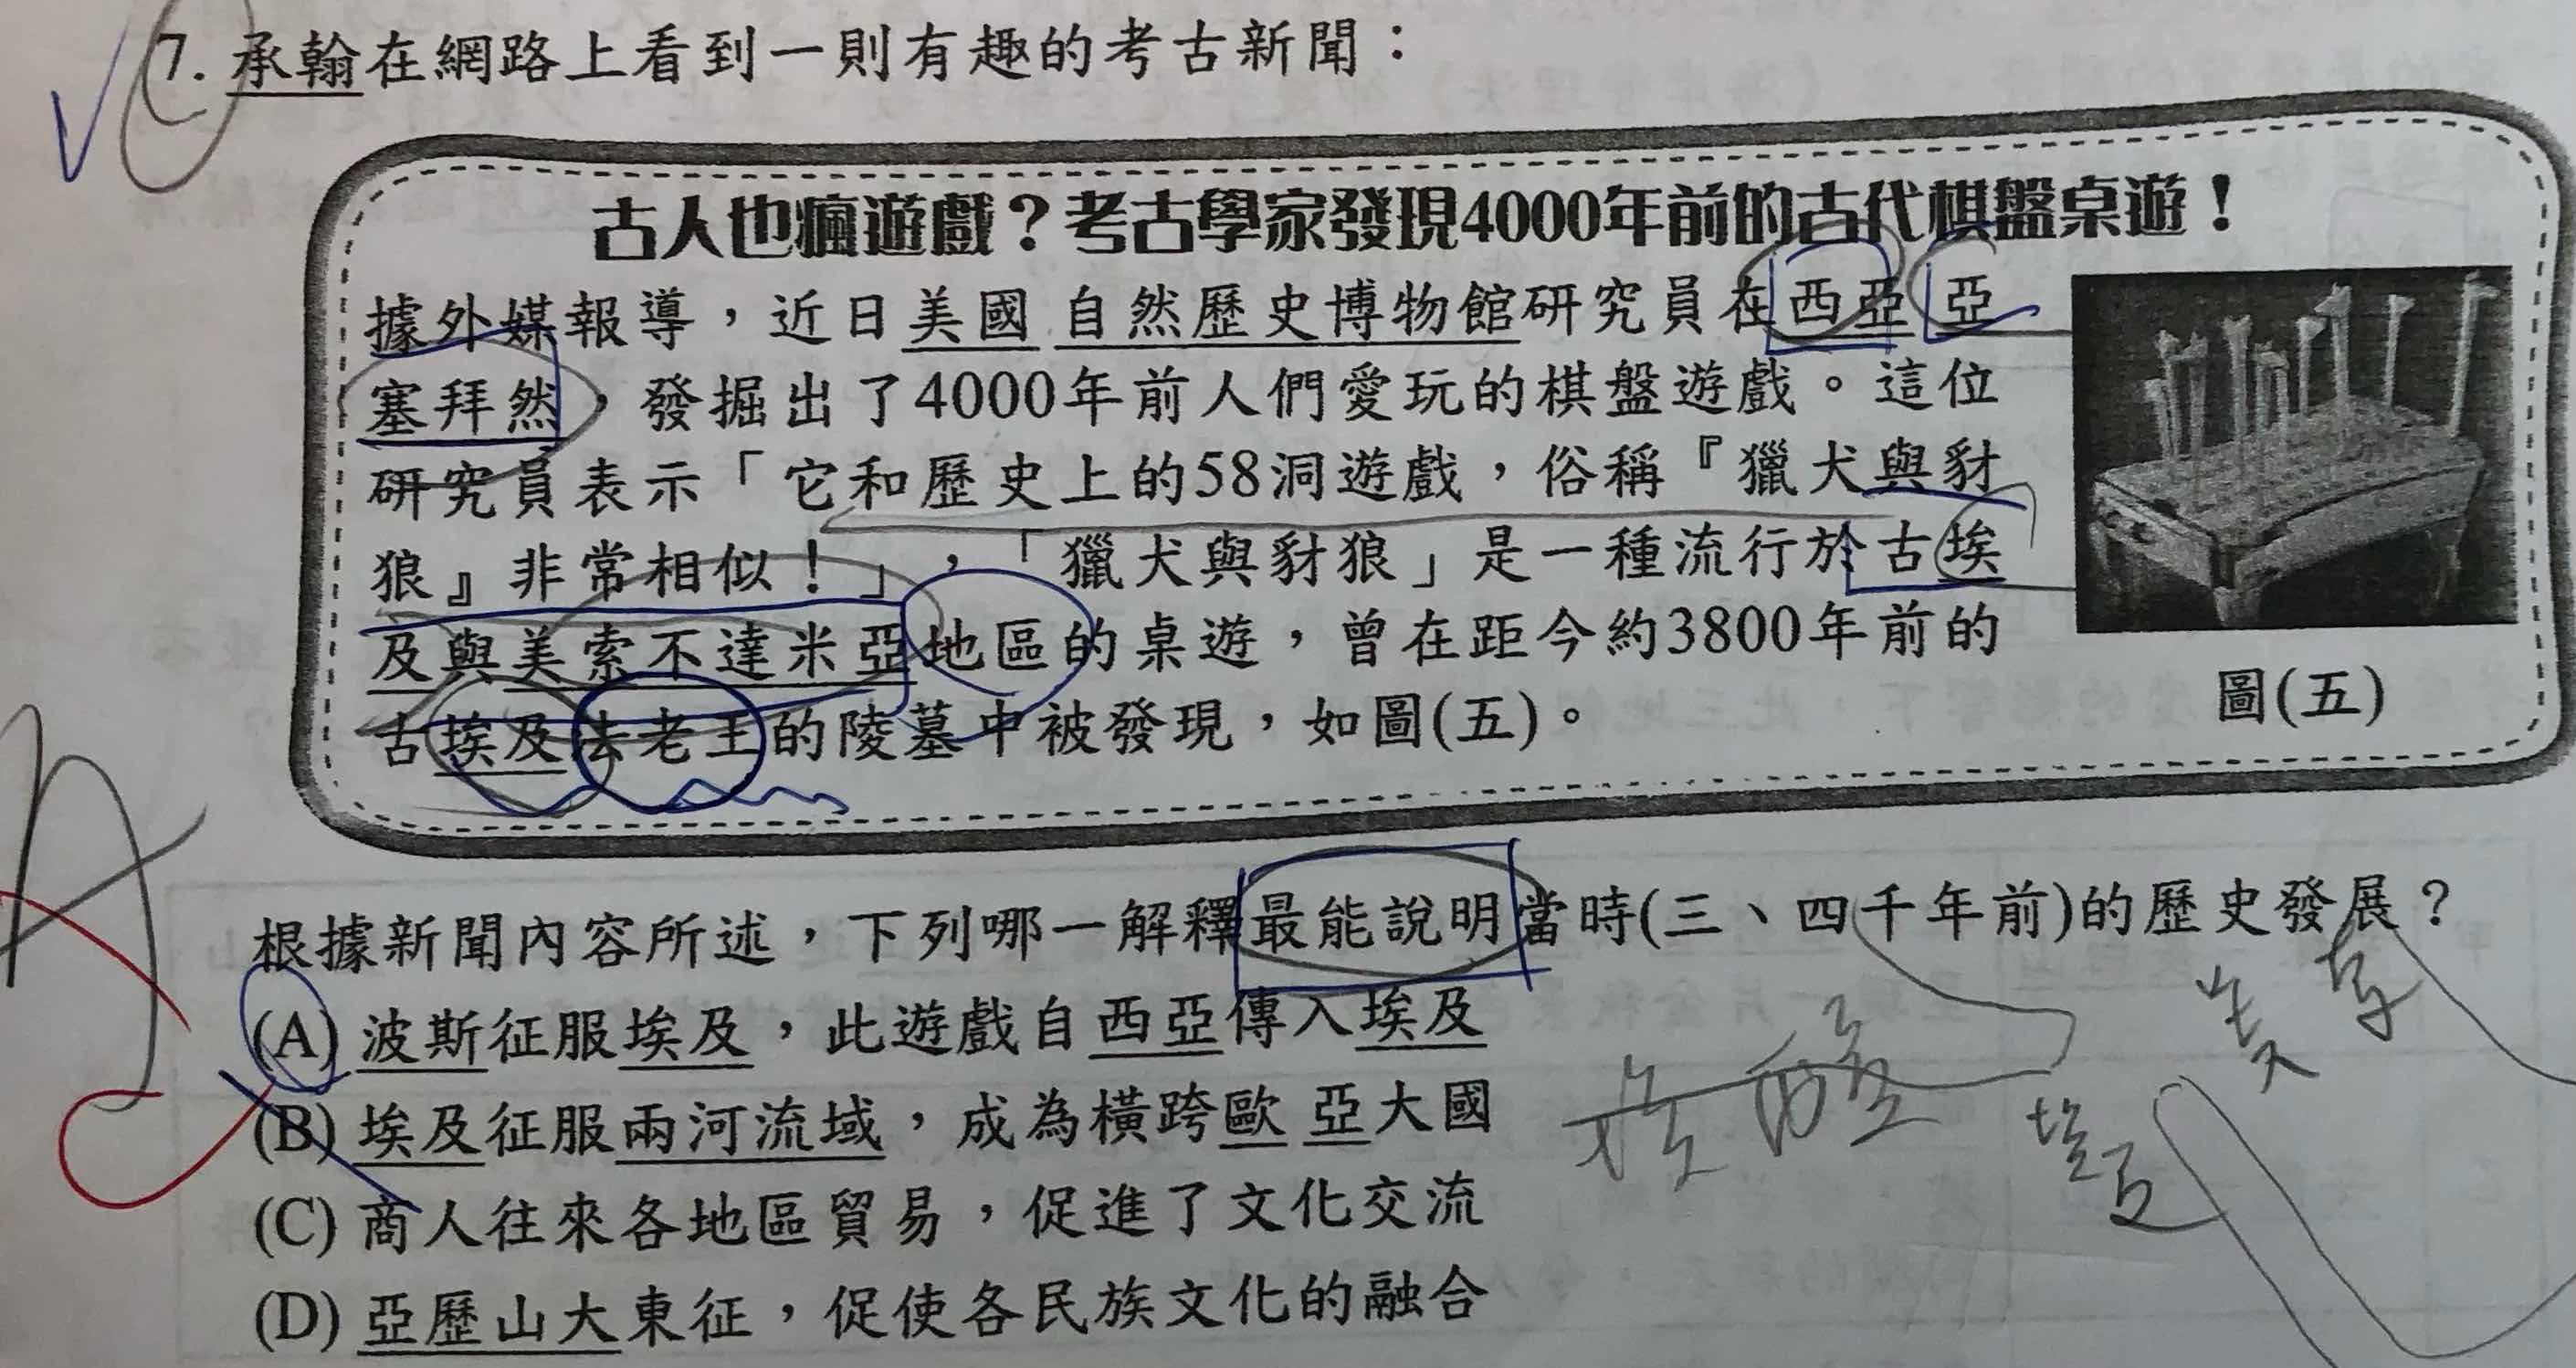 7. 承翰在網路上看到一則有趣的考古新聞：
古人也瘋遊戲？考古學家發現4000年前的古代棋盤桌遊！
據外媒報導，近日美國 自然歷史博物館研究員在西亞 亞
塞拜然，發掘出了4000年前人們愛玩的棋盤遊戲。這位
研究員表示「它和歷史上的58洞遊戲，俗稱『獵犬與豺
狼』非常相似！」，「獵犬與豺狼」是一種流行於古埃
及與美索不達米亞地區的桌遊，曾在距今約3800年前的
古埃及法老王的陵墓中被發現，如圖(五)。
圖(五)
A
根據新聞內容所述，下列哪一解釋最能說明當時(三、四千年前)的歷史發展？
(A) 波斯征服埃及，此遊戲自西亞傳入埃及
(B) 埃及征服兩河流域，成為橫跨歐 亞大國
(C) 商人往來各地區貿易，促進了文化交流
(D) 亞歷山大東征，促使各民族文化的融合